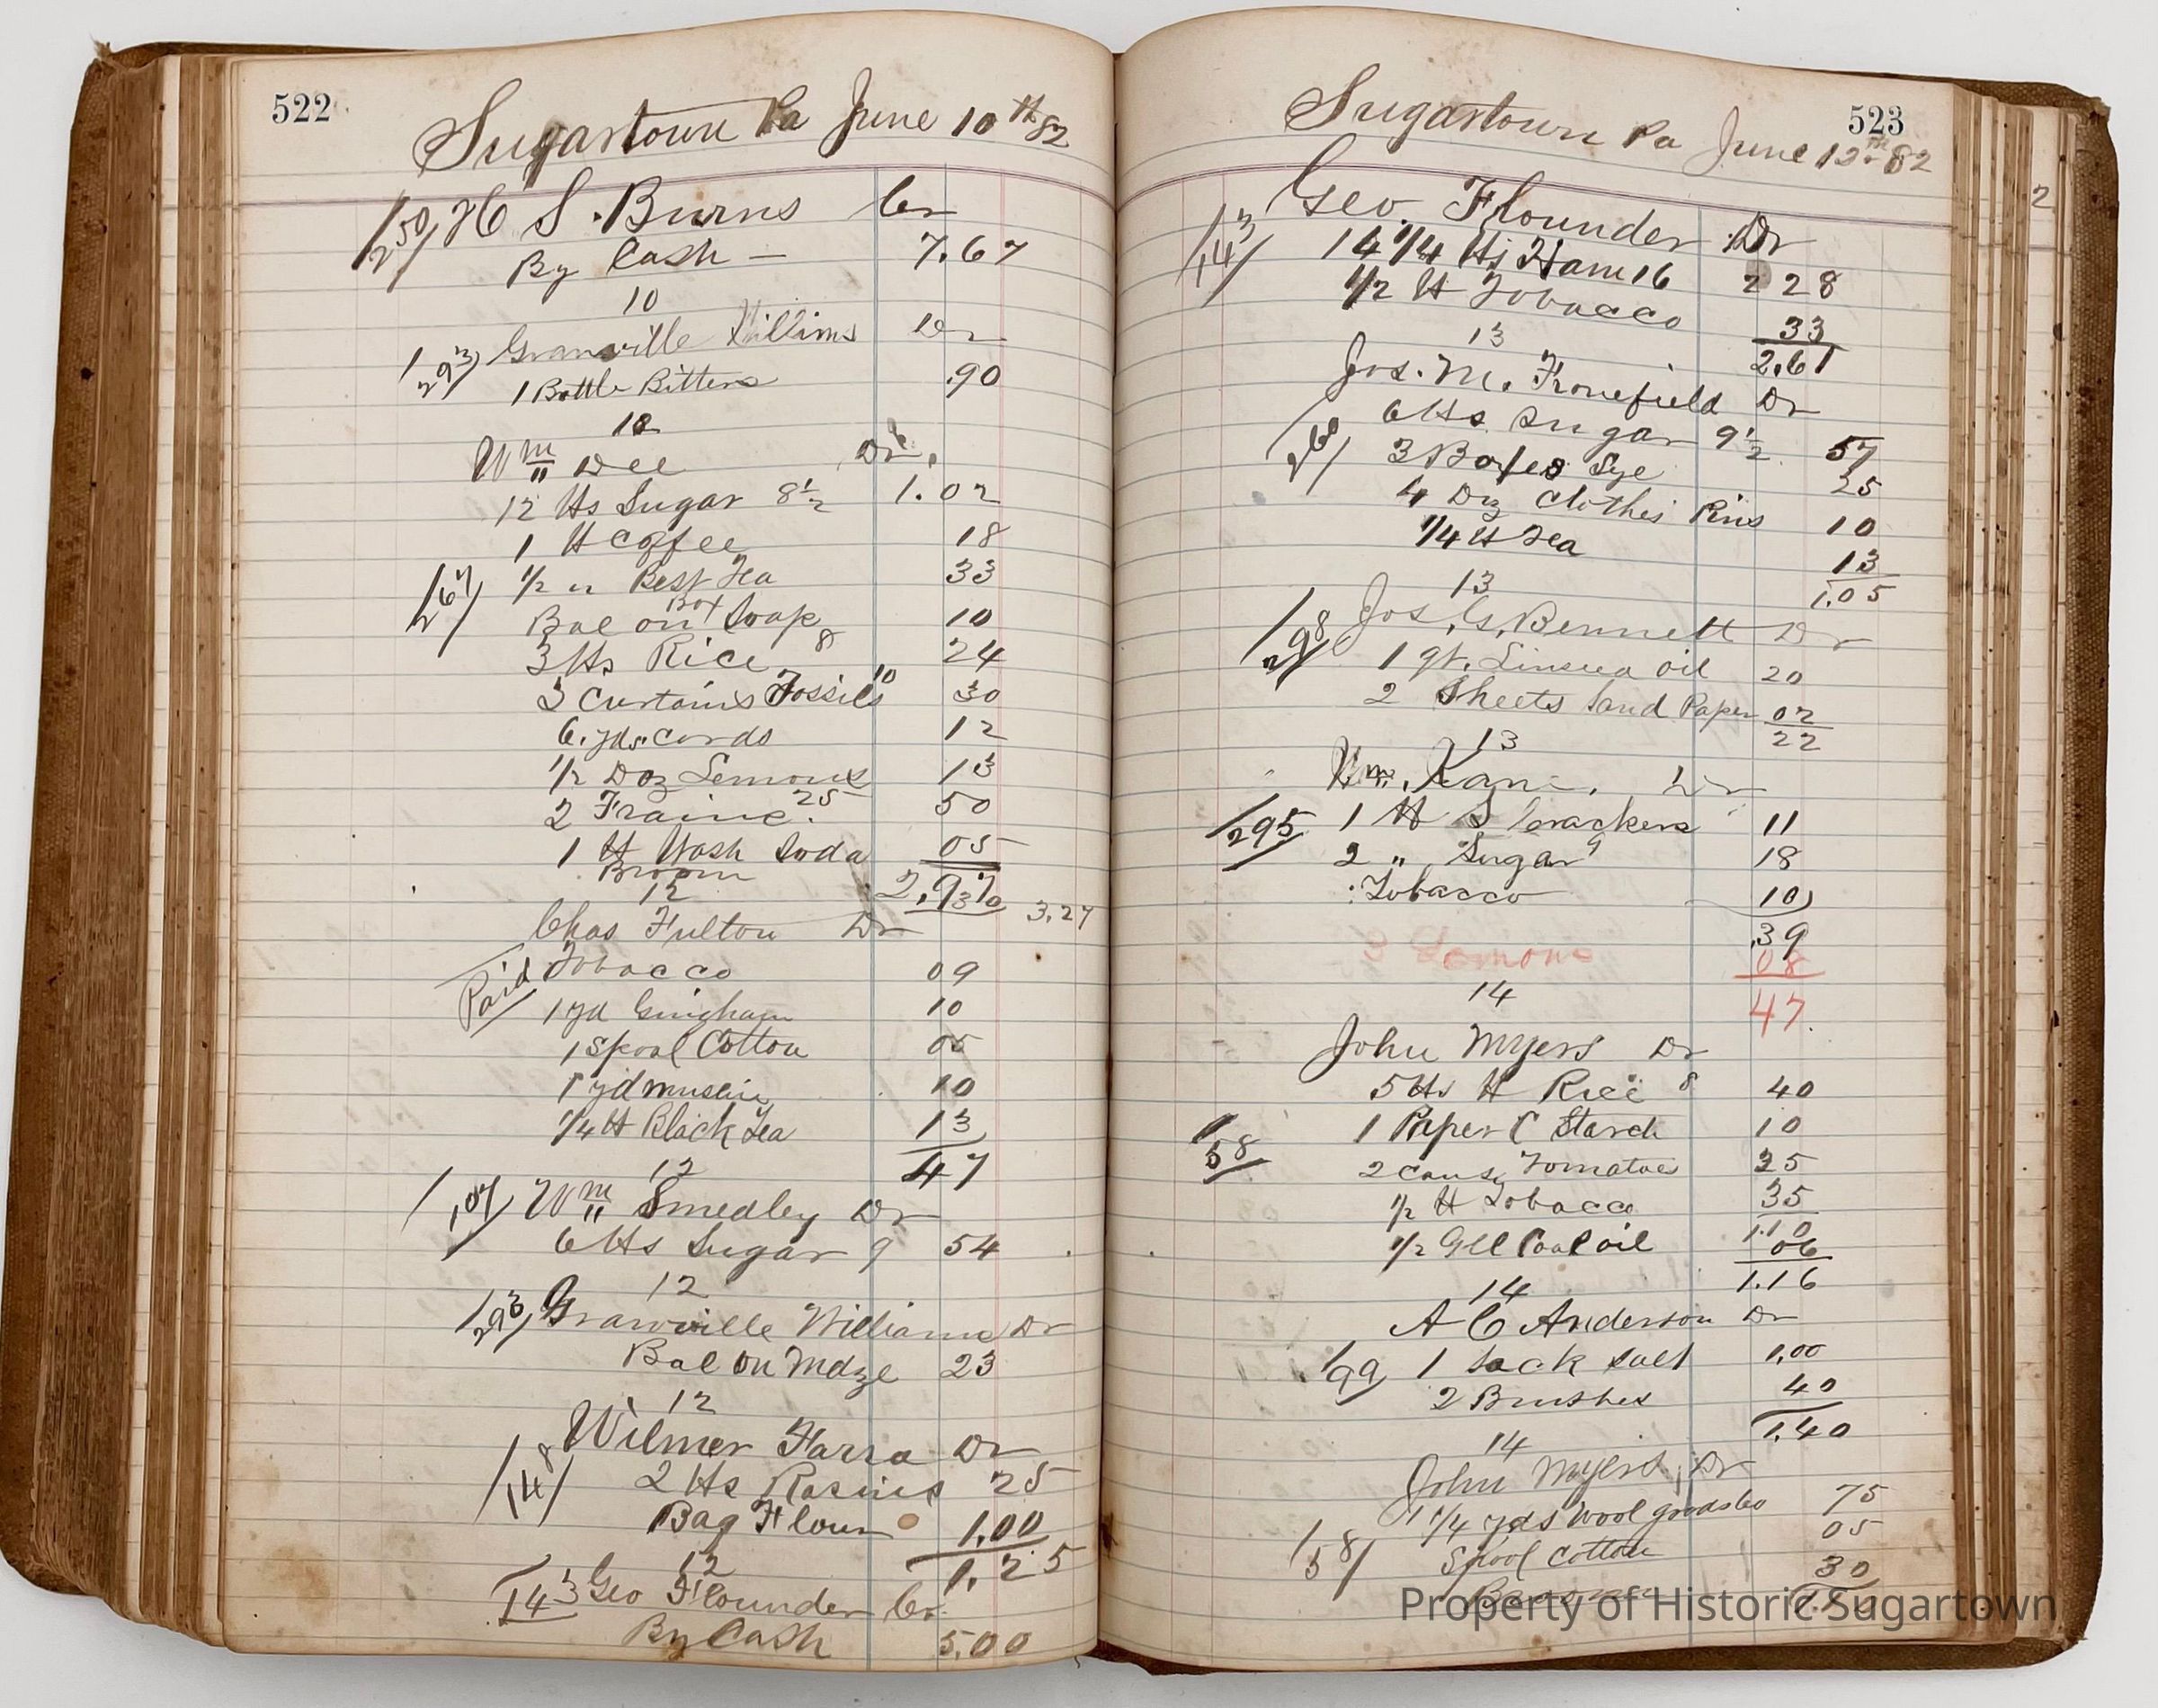 522
Sugartown Pa June 10th 82
250 H S. Burns Cr
By Cash — 7.67
10
293 Granville Williams Dr
1 Bottle Bitters .90
12
Wm Dee Dr.
12 lbs Sugar 8½ 1.02
1 lb Coffee 18
267 1/2 " Best Tea 33
Bal on Box Soap 10
3 lbs Rice 8 24
3 Curtains Tossils 10 30
6. yds. Cords 12
1/2 Doz Lemons 13
2 25 50
1 lb Wash Soda 05
Broom
12 3.27
Chas Fulton Dr
Paid Tobacco 09
1 yd Gingham 10
1 Spool Cotton 05
1 yd muslin 10
1/4 lb Black Tea 13
12 47
107 Wm Smedley Dr
6 lbs Sugar 9 54
12
293 Granville Williams Dr
Bal on Mdze 23
12
148 Wilmer Farra Dr
2 lbs Rasins 25
Bag Flour 1.00
12 1.25
143 Geo Flounder Cr.
By Cash 5.00
523
Sugartown Pa June 12th 82
Geo. Flounder Dr
143 14 1/4 lbs Ham 16 2 28
1/2 lb Tobacco 33
13 2.61
Jos. M. Fronefield Dr
6 lbs Sugar 9½ 57
3 Boxes Lye 25
4 Doz Clothes Pins 10
1/4 lb Tea 13
13 1.05
298 Jos. G. Bennett Dr
1 qt. Linseed oil 20
2 Sheets Sand Paper 02
13 22
Wm. Kane. Dr
295 1 lb S Crackers 11
2 " Sugar 9 18
Tobacco 10
.39
3 Lemons 08
14 47
John Myers Dr
5 lbs H Rice 8 40
58 1 Paper C Starch 10
2 Cans Tomatoes 25
1/2 lb Tobacco 35
1.10
1/2 Gll Coal oil 06
14 1.16
A C Anderson Dr
199 1 Sack Salt 1.00
2 Brushes 40
14 1.40
John Myers, Dr
1 1/4 yds Wool goods 60 75
58 Spool Cotton 05
30
Property of Historic Sugartown